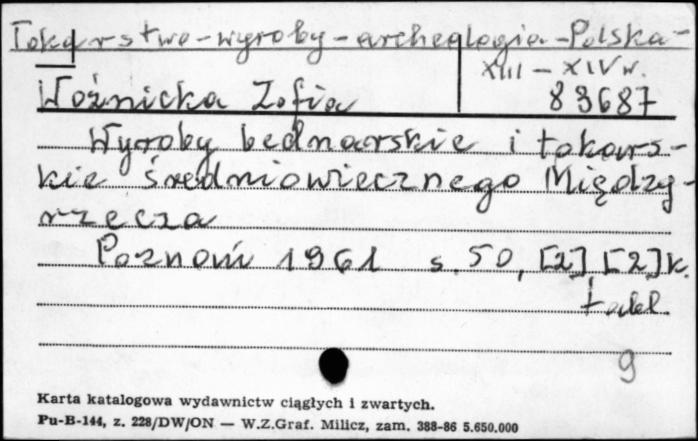 Tokarstwo - wyroby - archeologia - Polska -
XIII - XIV w.
Woźnicka Zofia
83687
Wyroby bednarskie i tokars-
kie średniowiecznego Między-
rzecza
Poznań 1961 s. 50, [2], [2] k.
tabl.
9
Karta katalogowa wydawnictw ciągłych i zwartych.
Pu-B-144, z. 228/DW/ON — W.Z.Graf. Milicz, zam. 388-86 5.650.000